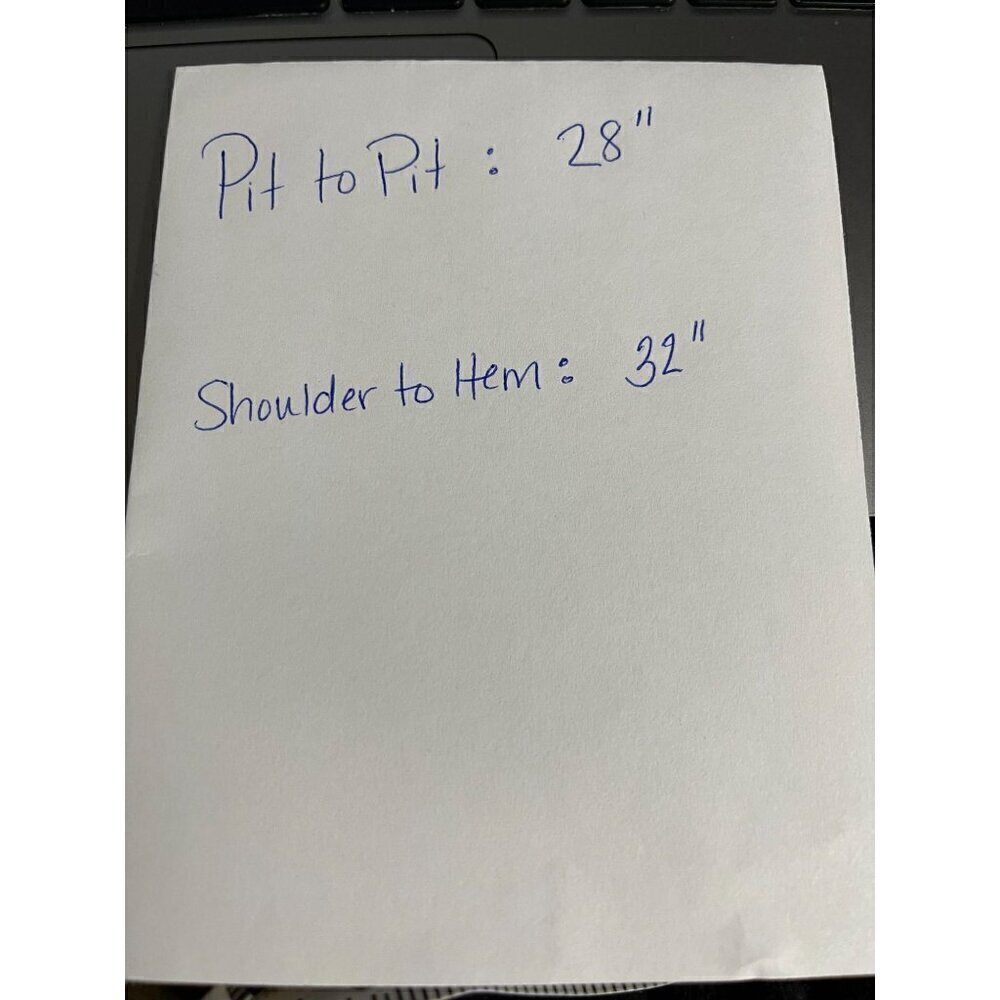 Pit to Pit : 28"
Shoulder to Hem : 32"